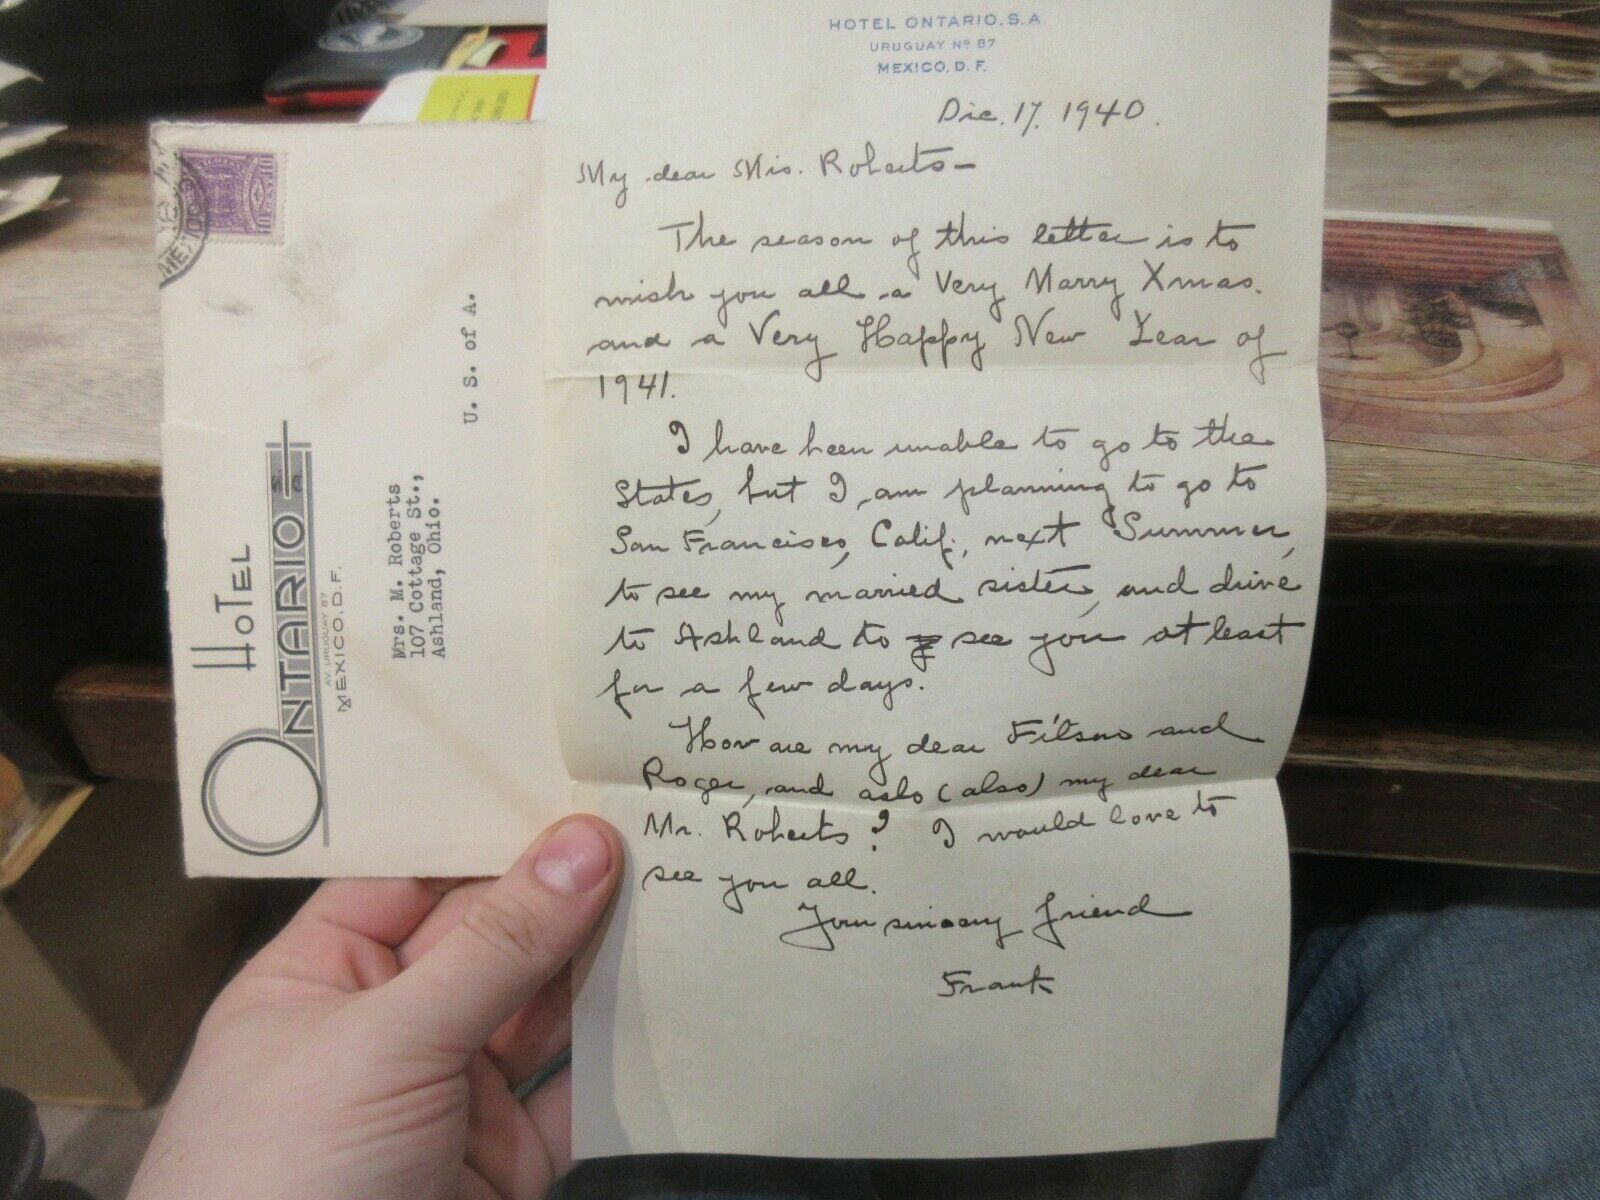 HOTEL ONTARIO. S. A
URUGUAY Nº 87
MEXICO, D. F.
Dic. 17. 1940.
My dear Mrs. Roberts —
The season of this letter is to
wish you all a Very Marry Xmas.
and a Very Happy New Year of
1941.
I have been unable to go to the
States, but I am planning to go to
San Francisco, Calif., next Summer,
to see my married sister, and drive
to Ashland to see you at least
for a few days.
How are my dear and
Roger, and aslo (also) my dear
Mr. Roberts? I would love to
see you all.
Your friend
Frank
HOTEL
ONTARIO
S. A.
AV. URUGUAY 87
MEXICO, D. F.
Mrs. M. Roberts
107 Cottage St.,
Ashland, Ohio.
U. S. of A.